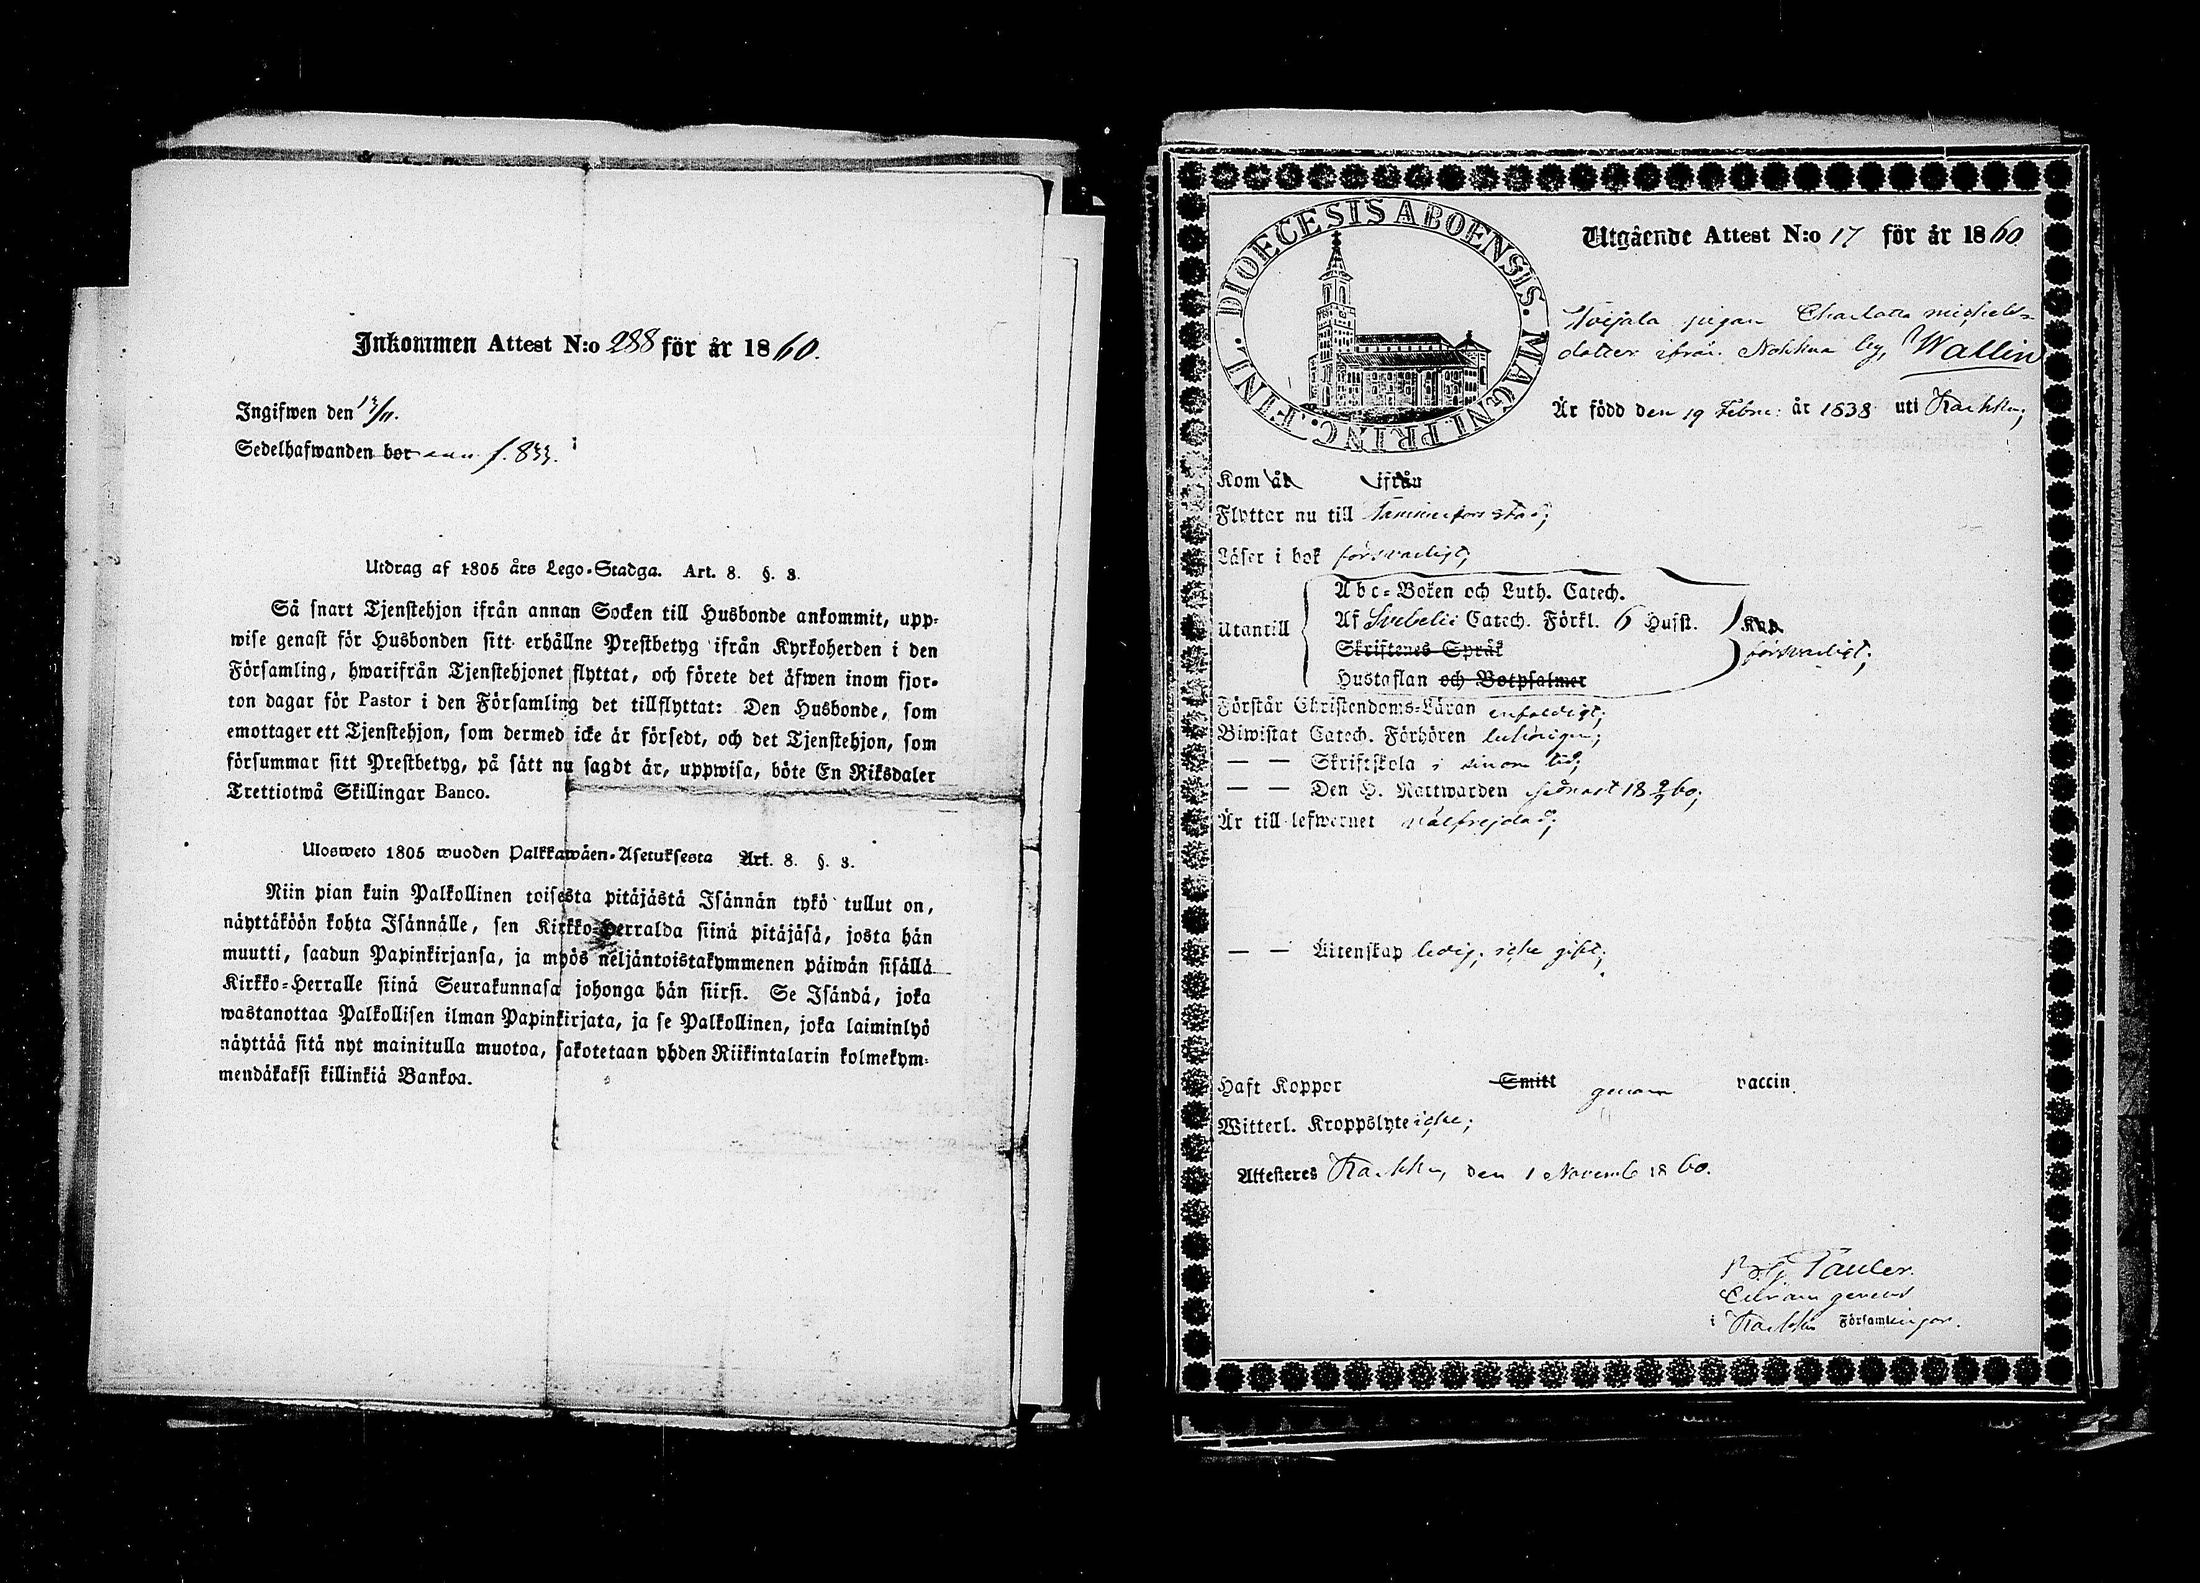 Inkommen Attest N:o 288 för år 1860.
Ingifwen den 13/11.
Sedelhafwanden bor f. 833.
Utdrag af 1805 års Lego-Stadga. Art. 8. §. 3.
Så snart Tjenstehjon ifrån annan Socken till Husbonde ankommit, upp-
wise genast för Husbonden sitt erhållne Prestbetyg ifrån Kyrkoherden i den
Församling, hwarifrån Tjenstehjonet flyttat, och förete det äfwen inom fjor-
ton dagar för Pastor i den Församling det tillflyttat: Den Husbonde, som
emottager ett Tjenstehjon, som dermed icke är försedt, och det Tjenstehjon, som
försummar sitt Prestbetyg, på sätt nu sagdt är, uppwisa, böte En Riksdaler
Trettiotwå Skillingar Banco.
Ulosweto 1805 wuoden Palkkawäen-Asetuksesta Art. 8. §. 3.
Niin pian kuin Palkollinen toisesta pitäjästä Isännän tykö tullut on,
näyttäköön kohta Isännälle, sen Kirkko-Herralda siinä pitäjäsä, josta hän
muutti, saadun Papinkirjansa, ja myös neljäntoistakymmenen päiwän sisällä
Kirkko-Herralle siinä Seurakunnasa johonga hän siirsi. Se Isändä, joka
wastanottaa Palkollisen ilman Papinkirjata, ja se Palkollinen, joka laiminlyö
näyttää sitä nyt mainitulla muotoa, sakotetaan yhden Riikintalarin kolmekym-
mendäkaksi killinkiä Bankoa.
DIOECESIS ABOENSIS. MAGNI. PRINC. FINL.
Utgående Attest N:o 17 för år 1860
pigan Charlotta Michels-
dotter ifrån Nokkua by, Wallin
Är född den 19 Febru: år 1838 uti Karkku;
Kom år ifrån
Flyttar nu till Tammerfors stad;
Läser i bok försvarligt;
Abc-Boken och Luth. Catech.
Utantill Af Svebelii Catech. Förkl. 6 Hufst. Kap.
Skriftenes Språk försvarligt;
Hustaflan och Botpsalmer
Förstår Christendoms-Läran enfaldigt;
Biwistat Catech. Förhören behörigen;
— — Skriftskola i sinom tid;
— — Den H. Nattwarden sednast 18 2/9 60;
Är till lefwernet välfrejdad;
— — Äktenskap ledig, icke gift;
Haft Koppor Smitt genom vaccin.
Witterl. Kroppslyte icke;
Attesteres Karkku, den 1 Novemb 1860.
Tauler.
i Karkku Församlingar.